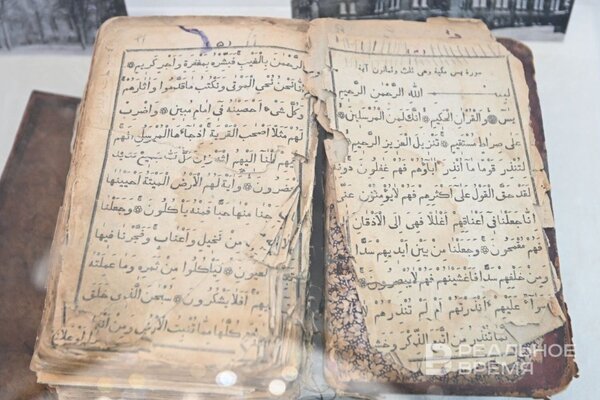 سورة يس مكية وهي ثلث وثمانون آية
الله الرحمن الرحيم
يس والقرآن الحكيم إنك لمن المرسلين
على صراط مستقيم تنزيل العزيز الرحيم
لتنذر قوما ما أنذر آباؤهم فهم غفلون
لقد حق القول على أكثرهم فهم لا يؤمنون
إنا جعلنا في أعناقهم أغللا فهي إلى الأذقان
فهم مقمحون وجعلنا من بين أيديهم سدا
ومن خلفهم سدا فأغشينهم فهم لا يبصرون
عليهم ءأنذرتهم أم لم تنذرهم
تنذر من اتبع الذكر وخشي
الرحمن بالغيب فبشره بمغفرة وأجر كريم
إنا نحن نحي الموتى ونكتب ما قدموا وآثارهم
وكل شيء أحصينه في إمام مبين واضرب
لهم مثلا أصحب القرية إذ جاءها المرسلون
محضرون وآية لهم الأرض الميتة أحيينها
وأخرجنا منها حبا فمنه يأكلون وجعلنا
من نخيل وأعناب وفجرنا فيها
العيون ليأكلوا من ثمره وما عملته
أفلا يشكرون سبحن الذي خلق
كلها مما تنبت الأرض ومن
РЕАЛЬНОЕ
ВРЕМЯ